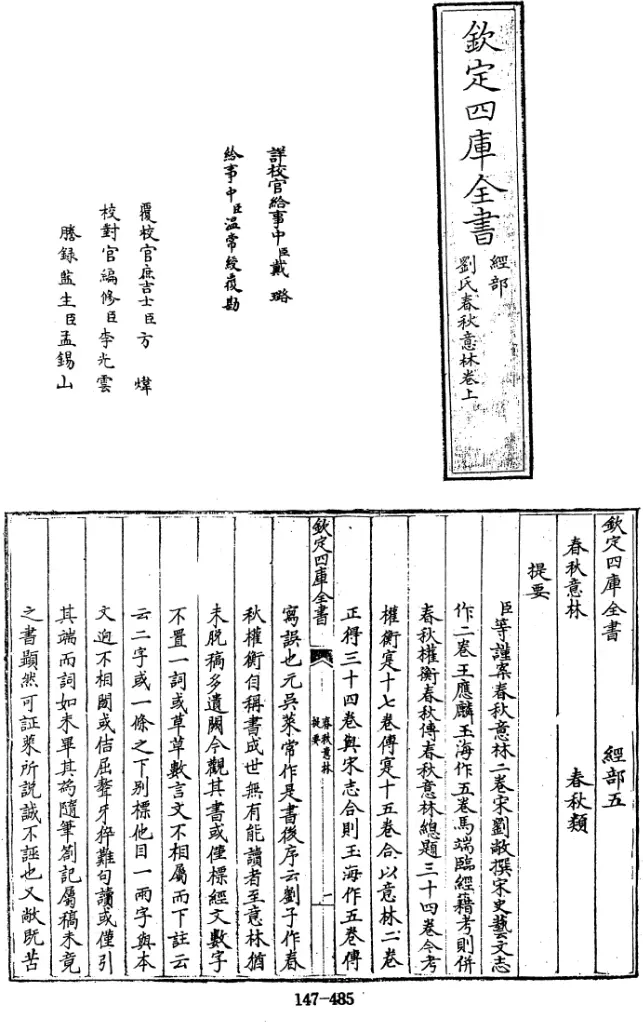 欽定四庫全書
經部
劉氏春秋意林卷上
詳校官給事中臣戴璐
給事中臣溫常綬覆勘
覆校官庶吉士臣方煒
校對官編修臣李光雲
謄錄監生臣孟錫山
欽定四庫全書 經部五
春秋意林 春秋類
提要
臣等謹案春秋意林二卷宋劉敞撰宋史藝文志
作二卷王應麟玉海作五卷馬端臨經籍考則併
春秋權衡春秋傳春秋意林總題三十四卷今考
權衡寔十七卷傳寔十五卷合以意林二卷
正得三十四卷與宋志合則玉海作五卷傳
欽定四庫全書
春秋意林
提要
一
寫誤也元吳萊常作是書後序云劉子作春
秋權衡自稱書成世無有能讀者至意林猶
未脫稿多遺闕今觀其書或僅標經文數字
不置一詞或草草數言文不相屬而下註云
云二字或一條之下別標他目一兩字與本
文迥不相關或佶屈聱牙猝難句讀或僅引
其端而詞如未畢其為隨筆劄記屬稿未竟
之書顯然可証萊所說誠不誣也又敞既苦
147-485